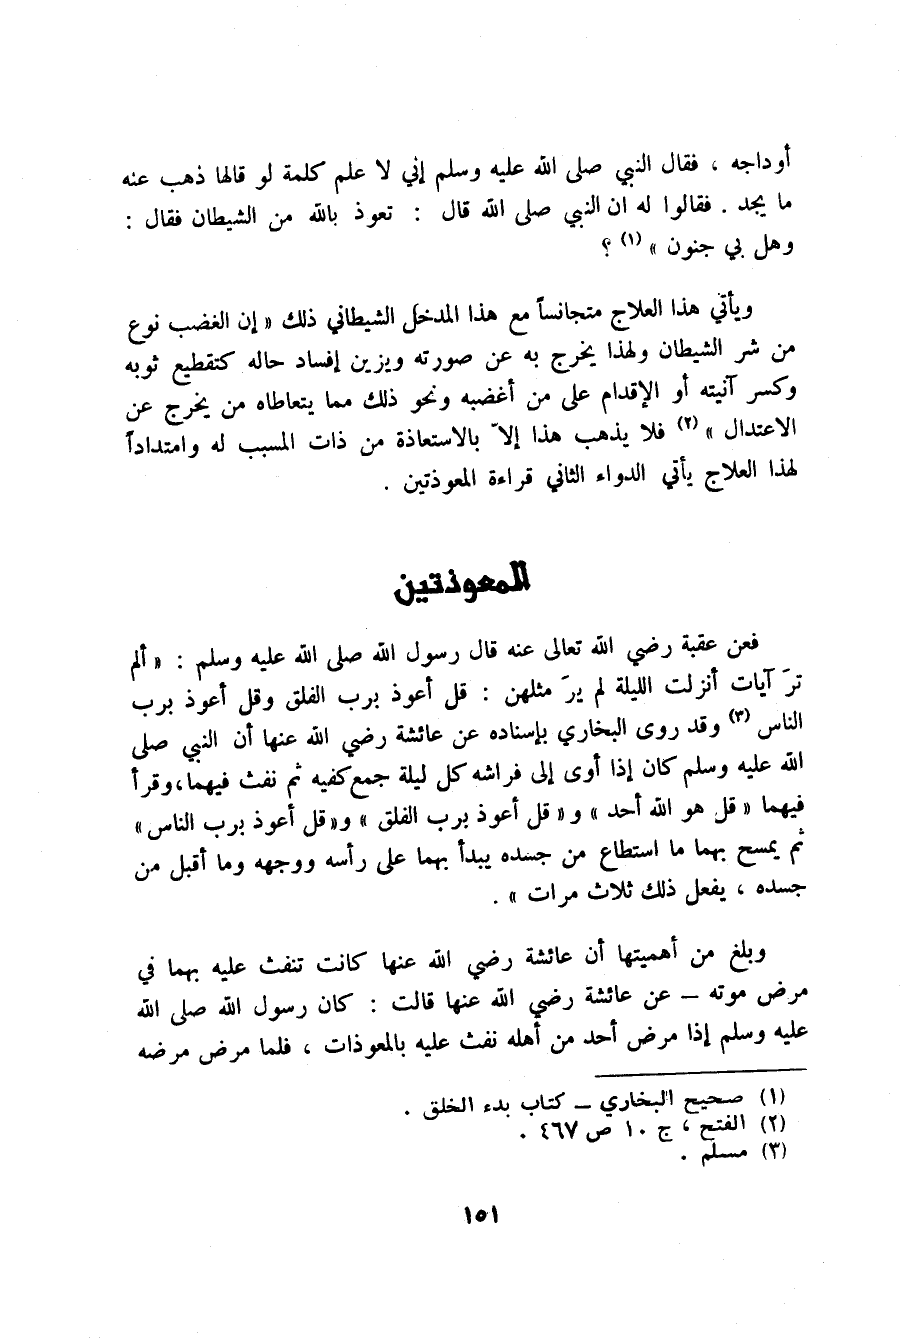 أوداجه ، فقال النبي صلى الله عليه وسلم إني لا علم كلمة لو قالها ذهب عنه
ما يجد . فقالوا له ان النبي صلى الله قال : تعوذ بالله من الشيطان فقال :
وهل بي جنون » (١) ؟
ويأتي هذا العلاج متجانساً مع هذا المدخل الشيطاني ذلك « إن الغضب نوع
من شر الشيطان ولهذا يخرج به عن صورته ويزين إفساد حاله كتقطيع ثوبه
وكسر آنيته أو الإقدام على من أغضبه ونحو ذلك مما يتعاطاه من يخرج عن
الاعتدال » (٢) فلا يذهب هذا إلاّ بالاستعاذة من ذات المسبب له وامتداداً
لهذا العلاج يأتي الدواء الثاني قراءة المعوذتين .
المعوذتين
فعن عقبة رضي الله تعالى عنه قال رسول الله صلى الله عليه وسلم : « ألم
ترَ آيات أنزلت الليلة لم يرَ مثلهن : قل أعوذ برب الفلق وقل أعوذ برب
الناس (٣) وقد روى البخاري بإسناده عن عائشة رضي الله عنها أن النبي صلى
الله عليه وسلم كان إذا أوى إلى فراشه كل ليلة جمع كفيه ثم نفث فيهما،وقرأ
فيهما « قل هو الله أحد » و « قل أعوذ برب الفلق » و«قل أعوذ برب الناس»
ثم يمسح بهما ما استطاع من جسده يبدأ بهما على رأسه ووجهه وما أقبل من
جسده ، يفعل ذلك ثلاث مرات » .
وبلغ من أهميتها أن عائشة رضي الله عنها كانت تنفث عليه بهما في
مرض موته – عن عائشة رضي الله عنها قالت : كان رسول الله صلى الله
عليه وسلم إذا مرض أحد من أهله نفث عليه بالمعوذات ، فلما مرض مرضه
(١) صحيح البخاري – كتاب بدء الخلق .
(٢) الفتح ، ج ١٠ ص ٤٦٧ .
(٣) مسلم .
١٥١